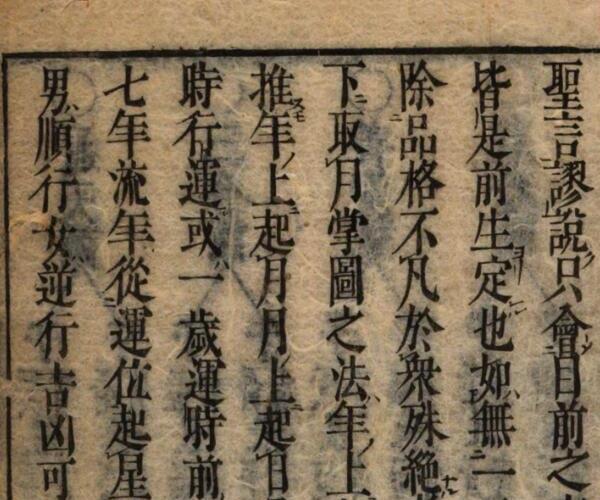 聖言謬說只會目前之
皆是前生定也如無二
除品格不凡於衆殊絶
下取月掌圖之法年上
推年上起月月上起日
時行運或一歲運時前
七年流年從運位起星
男順行女逆行吉凶可